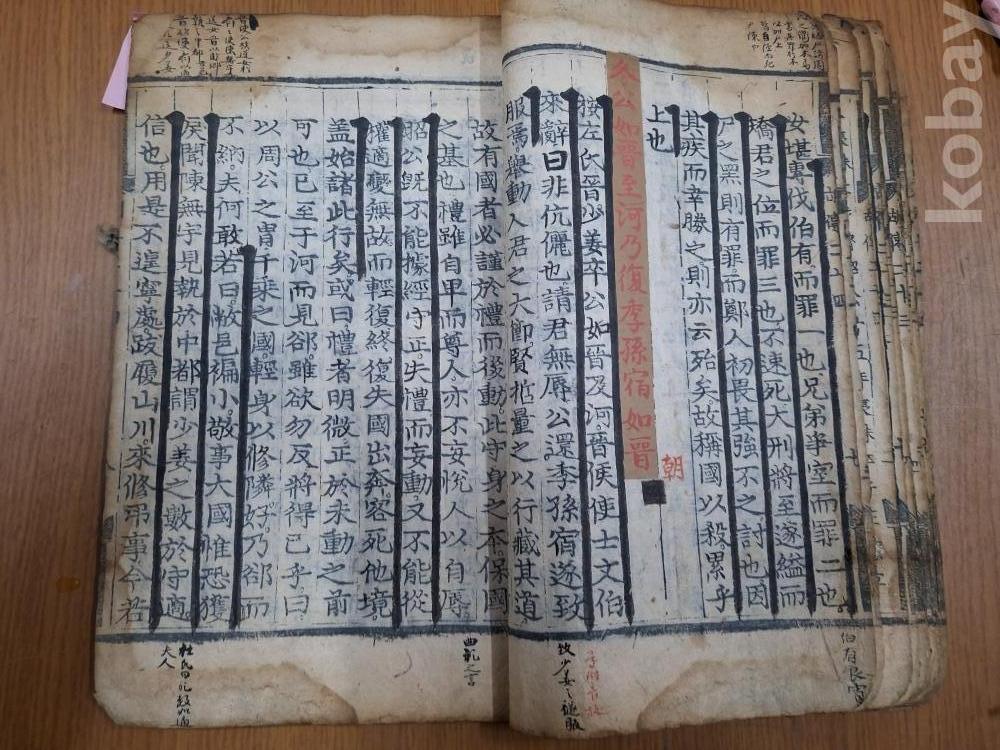 女堪專伐伯有而罪一也兄弟爭室而罪二也
矯君之位而罪三也不速死大刑將至遂縊而
尸之黑則有罪而鄭人初畏其強不之討也因
其疾而幸勝之則亦云殆矣故稱國以殺累乎
上也
冬公如晉至河乃復季孫宿如晉
朝
按左氏晉少姜卒公如晉及河晉侯使士文伯
來辭曰非伉儷也請君無辱公還季孫宿遂致
服焉舉動人君之大節賢哲量之以行藏其道
故有國者必謹於禮而後動此守身之本保國
之基也禮雖自卑而尊人亦不妄悅人以自辱
昭公旣不能據經守正失禮而妄動又不能從
權適變無故而輕復終復失國出奔客死他境
盖始諸此行矣或曰禮者明微正於未動之前
可也已至于河而見郤雖欲勿反將得已乎曰
以周公之胄千乘之國輕身以修隣好乃郤而
不納夫何敢若曰敝邑褊小敬事大國惟恐獲
戾聞陳無宇見執於中都謂少姜之數於守適
信也用是不遑寧處跋履山川來修弔事今若
伯有良霄
致少姜之襚服
曲礼之言
夫人
kobay